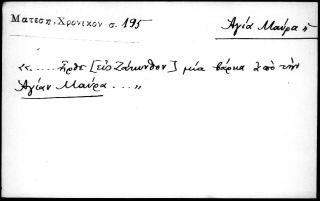 Ματεση, Χρονικον σ. 195
Αγία Μαύρα
«..... ἦρθε [εἰς Ζάκυνθον] μία βάρκα ἀπὸ τὴν
Αγίαν Μαύρα ...»